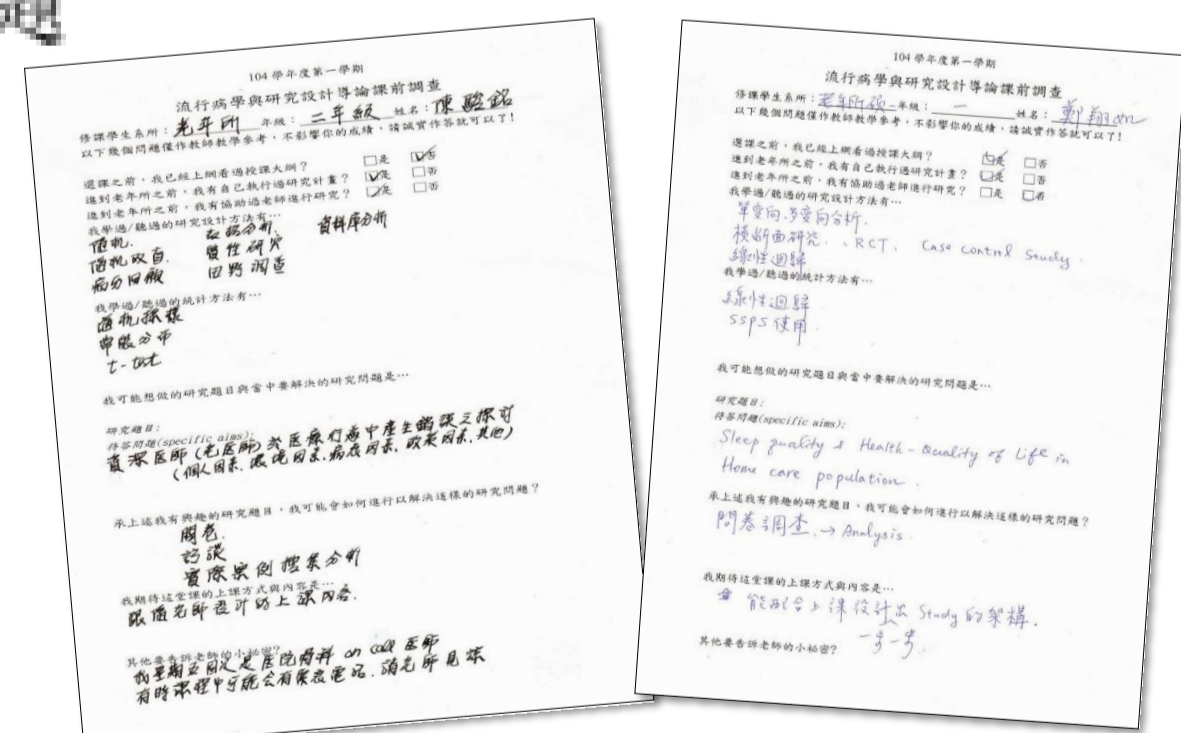 104 學年度第一學期
流行病學與研究設計導論課前調查
修課學生系所：老年所 年級：二年級 姓名：陳駿銘
以下幾個問題僅作教師教學參考，不影響你的成績，請誠實作答就可以了!
選課之前，我已經上網看過授課大綱？ □是 □否
進到老年所之前，我有自己執行過研究計畫？ □是 □否
進到老年所之前，我有協助過老師進行研究？ □是 □否
我學過/聽過的研究設計方法有…
隨機. 資料庫分析
隨機双盲. 質性研究
病歷回顧 田野調查
我學過/聽過的統計方法有…
隨機採樣
常態分布
t-test
我可能想做的研究題目與當中要解決的研究問題是…
研究題目：
待答問題(specific aims):
資深医師(老医師)於医療行為中產生錯誤之探討
(個人因素, 環境因素, 病患因素, 政策因素, 其他)
承上述我有興趣的研究題目，我可能會如何進行以解決這樣的研究問題？
問卷.
訪談
實際案例搜集分析
我期待這堂課的上課方式與內容是…
跟隨老師設計的上課內容.
其他要告訴老師的小秘密?
我星期五固定是医院骨科 on call 医師
有時課程中可能会有緊急電話. 請老師見諒
104 學年度第一學期
流行病學與研究設計導論課前調查
修課學生系所：老年所碩一年級：一 姓名：鄭翔
以下幾個問題僅作教師教學參考，不影響你的成績，請誠實作答就可以了!
選課之前，我已經上網看過授課大綱？ □是 □否
進到老年所之前，我有自己執行過研究計畫？ □是 □否
進到老年所之前，我有協助過老師進行研究？ □是 □否
我學過/聽過的研究設計方法有…
單變向.多變向分析.
橫斷面研究. 、RCT、 Case control study.
線性迴歸
我學過/聽過的統計方法有…
線性迴歸
SSPS 使用.
我可能想做的研究題目與當中要解決的研究問題是…
研究題目：
待答問題(specific aims):
Sleep quality & Health-Quality of Life in
Home care population.
承上述我有興趣的研究題目，我可能會如何進行以解決這樣的研究問題？
問卷調查. → Analysis.
我期待這堂課的上課方式與內容是…
能配合上課設計出 Study 的架構.
一步一步.
其他要告訴老師的小秘密?